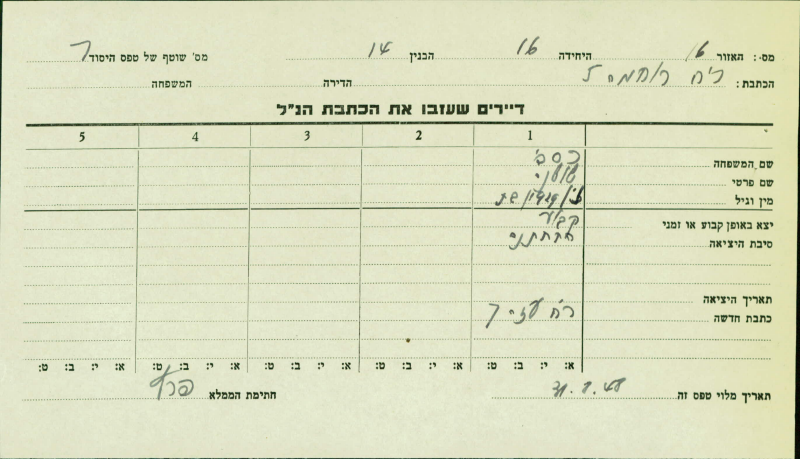 מס׳: האזור 16 היחידה 16 הבנין 14 מס׳ שוטף של טפס היסוד 7
הכתבת: רח׳ רוחמה 5 הדירה המשפחה
דיירים שעזבו את הכתבת הנ"ל
1 2 3 4 5
שם המשפחה
שם פרטי
מין וגיל
יצא באופן קבוע או זמני קבוע
סיבת היציאה התחתנה
תאריך היציאה
כתבת חדשה רח׳
א: י: ב: ט: א: י: ב: ט: א: י: ב: ט: א: י: ב: ט: א: י: ב: ט:
תאריך מלוי טפס זה חתימת הממלא